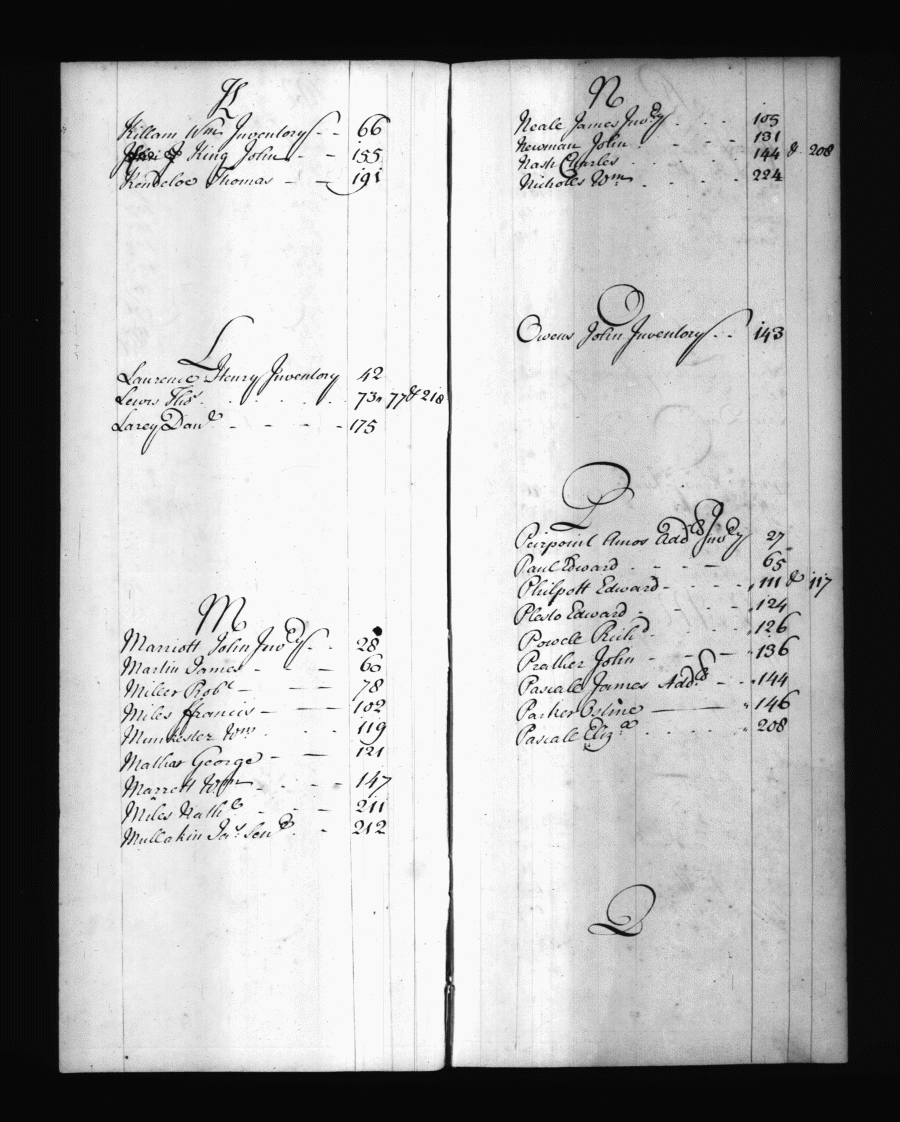 K
Killam Wm Inventory - - 66
King John - - 155
Kendeloe Thomas - - 191
L
Laurence Henry Inventory 42
Lewis Thos. . . . . . 73, 77 & 218
Larey Danl - - - - 175
M
Marriott John Invry . . 28
Martin James - - 60
Miller Robt - - - 78
Miles ffrancis - - 102
Minchester Wm . . . 119
Mathar George - - 121
Marrott Wm - - - 147
Miles Nathl - - - 211
Mullakin Jas. Senr . - 212
N
Neale James Invry . . . 105
Newman John - - - - 131
Nash Charles . . . . 144 & 208
Nicholls Wm . . . . 224
O
Owens John Inventory . . 143
P
Peirpoint Amos Addl Invry 27
Paul Edward . - - - 65
Philpott Edward - - - 111 & 117
Plesto Edward - - - - 124
Powell Richd - - - - 126
Prather John - - - - 136
Pascale James Addl - - 144
Parker Ostine —— —— 146
Pascale Eliza . . . . . 208
Q